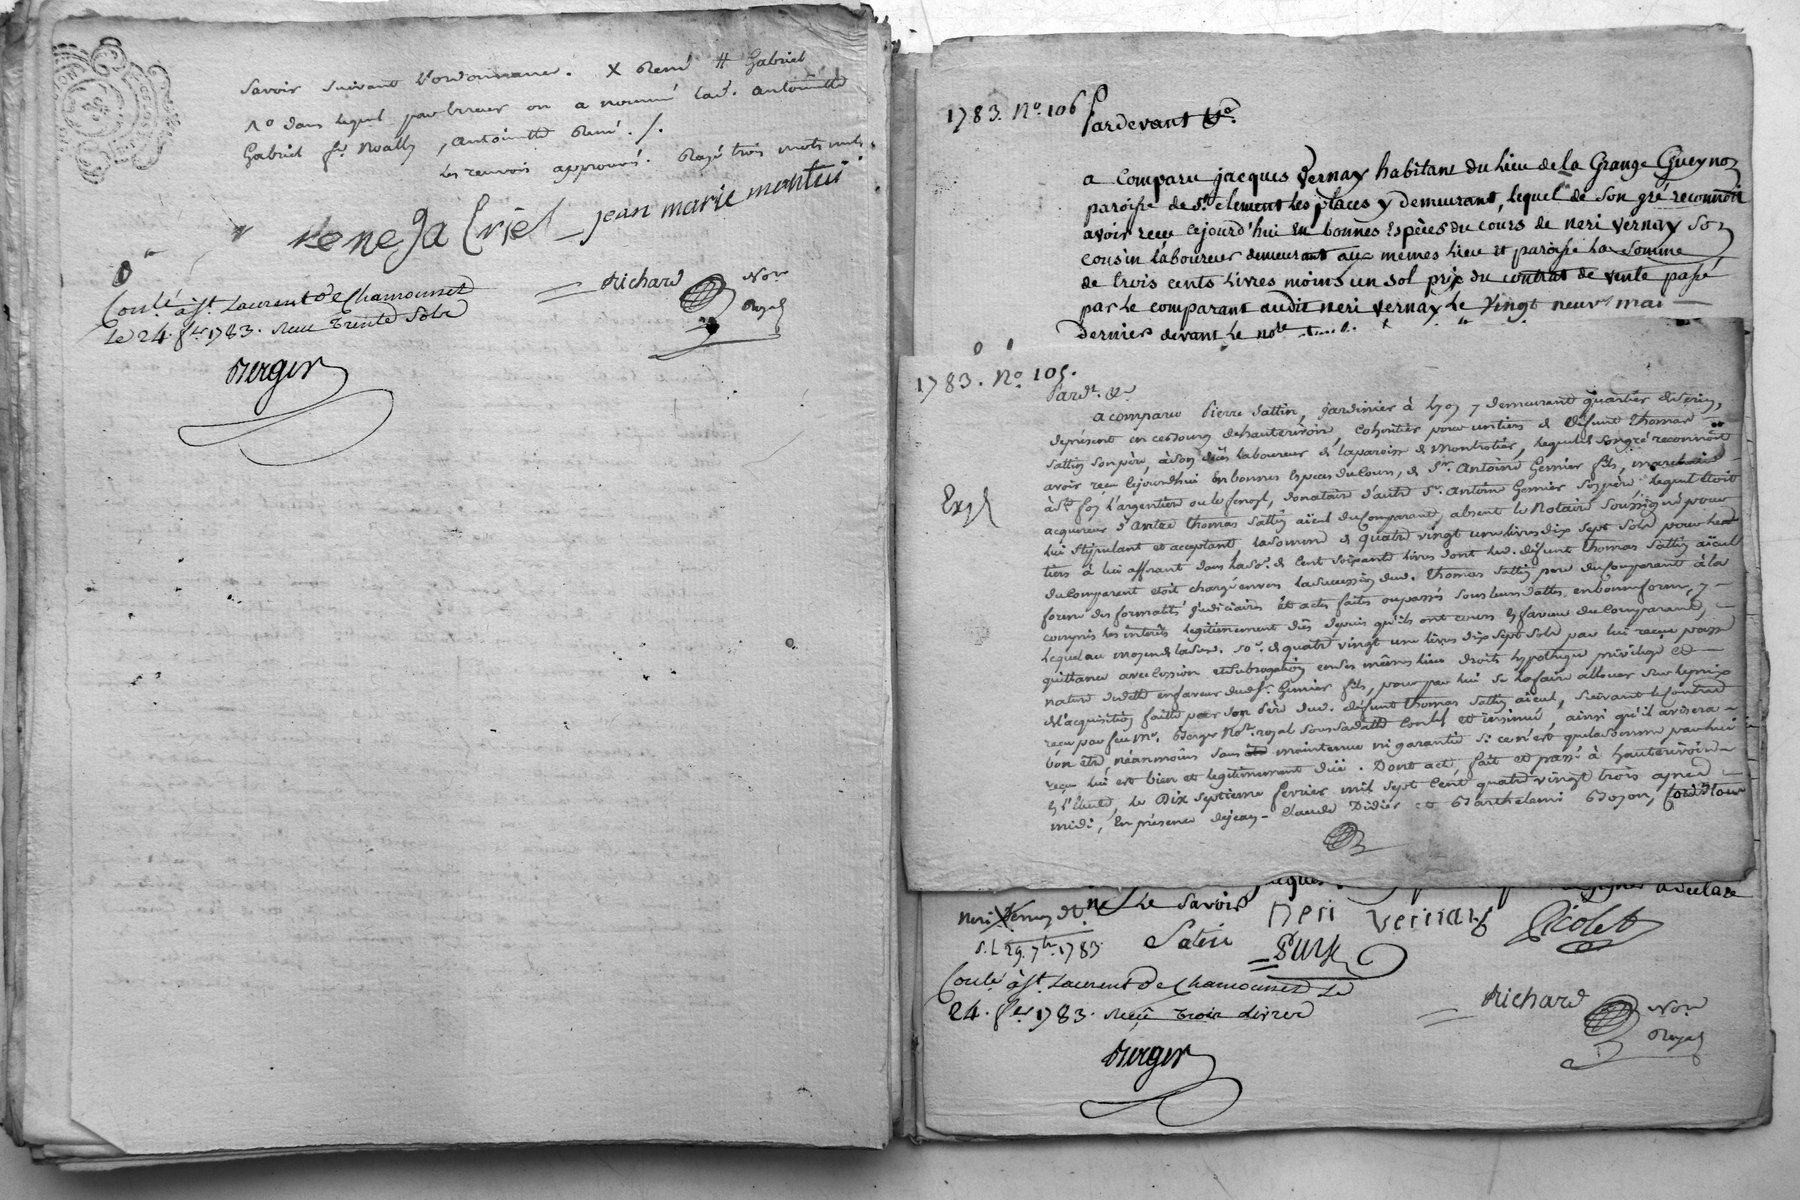 savoir suivant l'ordonnance. X René # Gabriel
1º dans lequel par erreur on a nommé lad. antoinette
Gabriel fe Noally, antoinette René ./.
Les renvois approuvés. Rayé trois mots nuls.
rene gabriel jean marie montui
Richard Nore
Royal
Conlé à st. Laurent de Chamousset
Le 24. fer 1783. Reçu trente sols
Berger
1783. No. 106
Pardevant &a.
a comparu jacques Vernay habitant du lieu de la Grange Gueynon
paroisse de st. clement les places y demeurant, lequel de son gré reconnoit
avoir recu cejourd'hui en bonnes Espèces du cours de neri vernay son
cousin laboureur demeurant aux mêmes lieu et paroisse la somme
de trois cents livres moins un sol prix du contrat de vente passé
par le comparant audit neri vernay le vingt neuf mai
dernier devant le nore
1783. No. 105.
Pardt. &a.
a comparu Pierre Sattin, Jardinier à Lyon y demeurant quartier de Serin,
de présent en ce bourg de hauterivoire, cohéritier pour un tiers de défunt thomas
Sattin son père, à son décès laboureur de la paroisse de Montrotier, lequel de son gré reconnoit
avoir reçu cejourd'hui en bonnes Espèces du cours, de sr. Antoine Gernier fils, marchand
à ste foy l'argentiere ou le fenoyl, donataire d'autre sr. Antoine Gernier son père lequel étoit
acquereur d'autre thomas Sattin aïeul du Comparant, absent le Notaire soussigné pour
lui stipulant et acceptant la somme de quatre vingt une livres dix sept sols pour le
tiers à lui afferant dans la so. de Cent soixante livres dont led. défunt thomas Sattin aïeul
du Comparant etoit chargé envers la succession dud. thomas Sattin père du Comparant à la
forme des formalités judiciaires et actes faits ou passés sous leurs dattes, en bonne forme, y
compris les intérêts legitimement dûs depuis qu'ils ont cours en faveur du Comparant,
lequel au moyen de lad. so. de quatre vingt une livres dix sept sols par lui reçue passe
quittance avec Cession et subrogation en ses mêmes lieu droits hypothèque privilege et
nature de dette en faveur dud. sr. Gernier fils, pour par lui se la faire allouer sur le prix
de l'acquisition faitte par son Père dud. défunt thomas Sattin aïeul, suivant le contrat
reçu par feu me. Berger Nore. royal sous sa datte Conlé et insinué, ainsi qu'il avisera
bon être, néanmoins sans maintenue ni garantie si ce n'est que la somme par lui
reçue lui est bien et legitimement düe. Dont acte, fait et passé à hauterivoire
En l'Etude, le Dix septieme fevrier mil sept Cent quatre vingt trois après
midi, En présence de jean-Claude Didier et Barthelemi Bozon,
Expé
ne le savoir
S.L 29. 7bre 1783.
neri vernay
Conlé à st. Laurent de Chamousset le
24. fer 1783. Reçu trois livres
Richard Nore
Royal
Berger